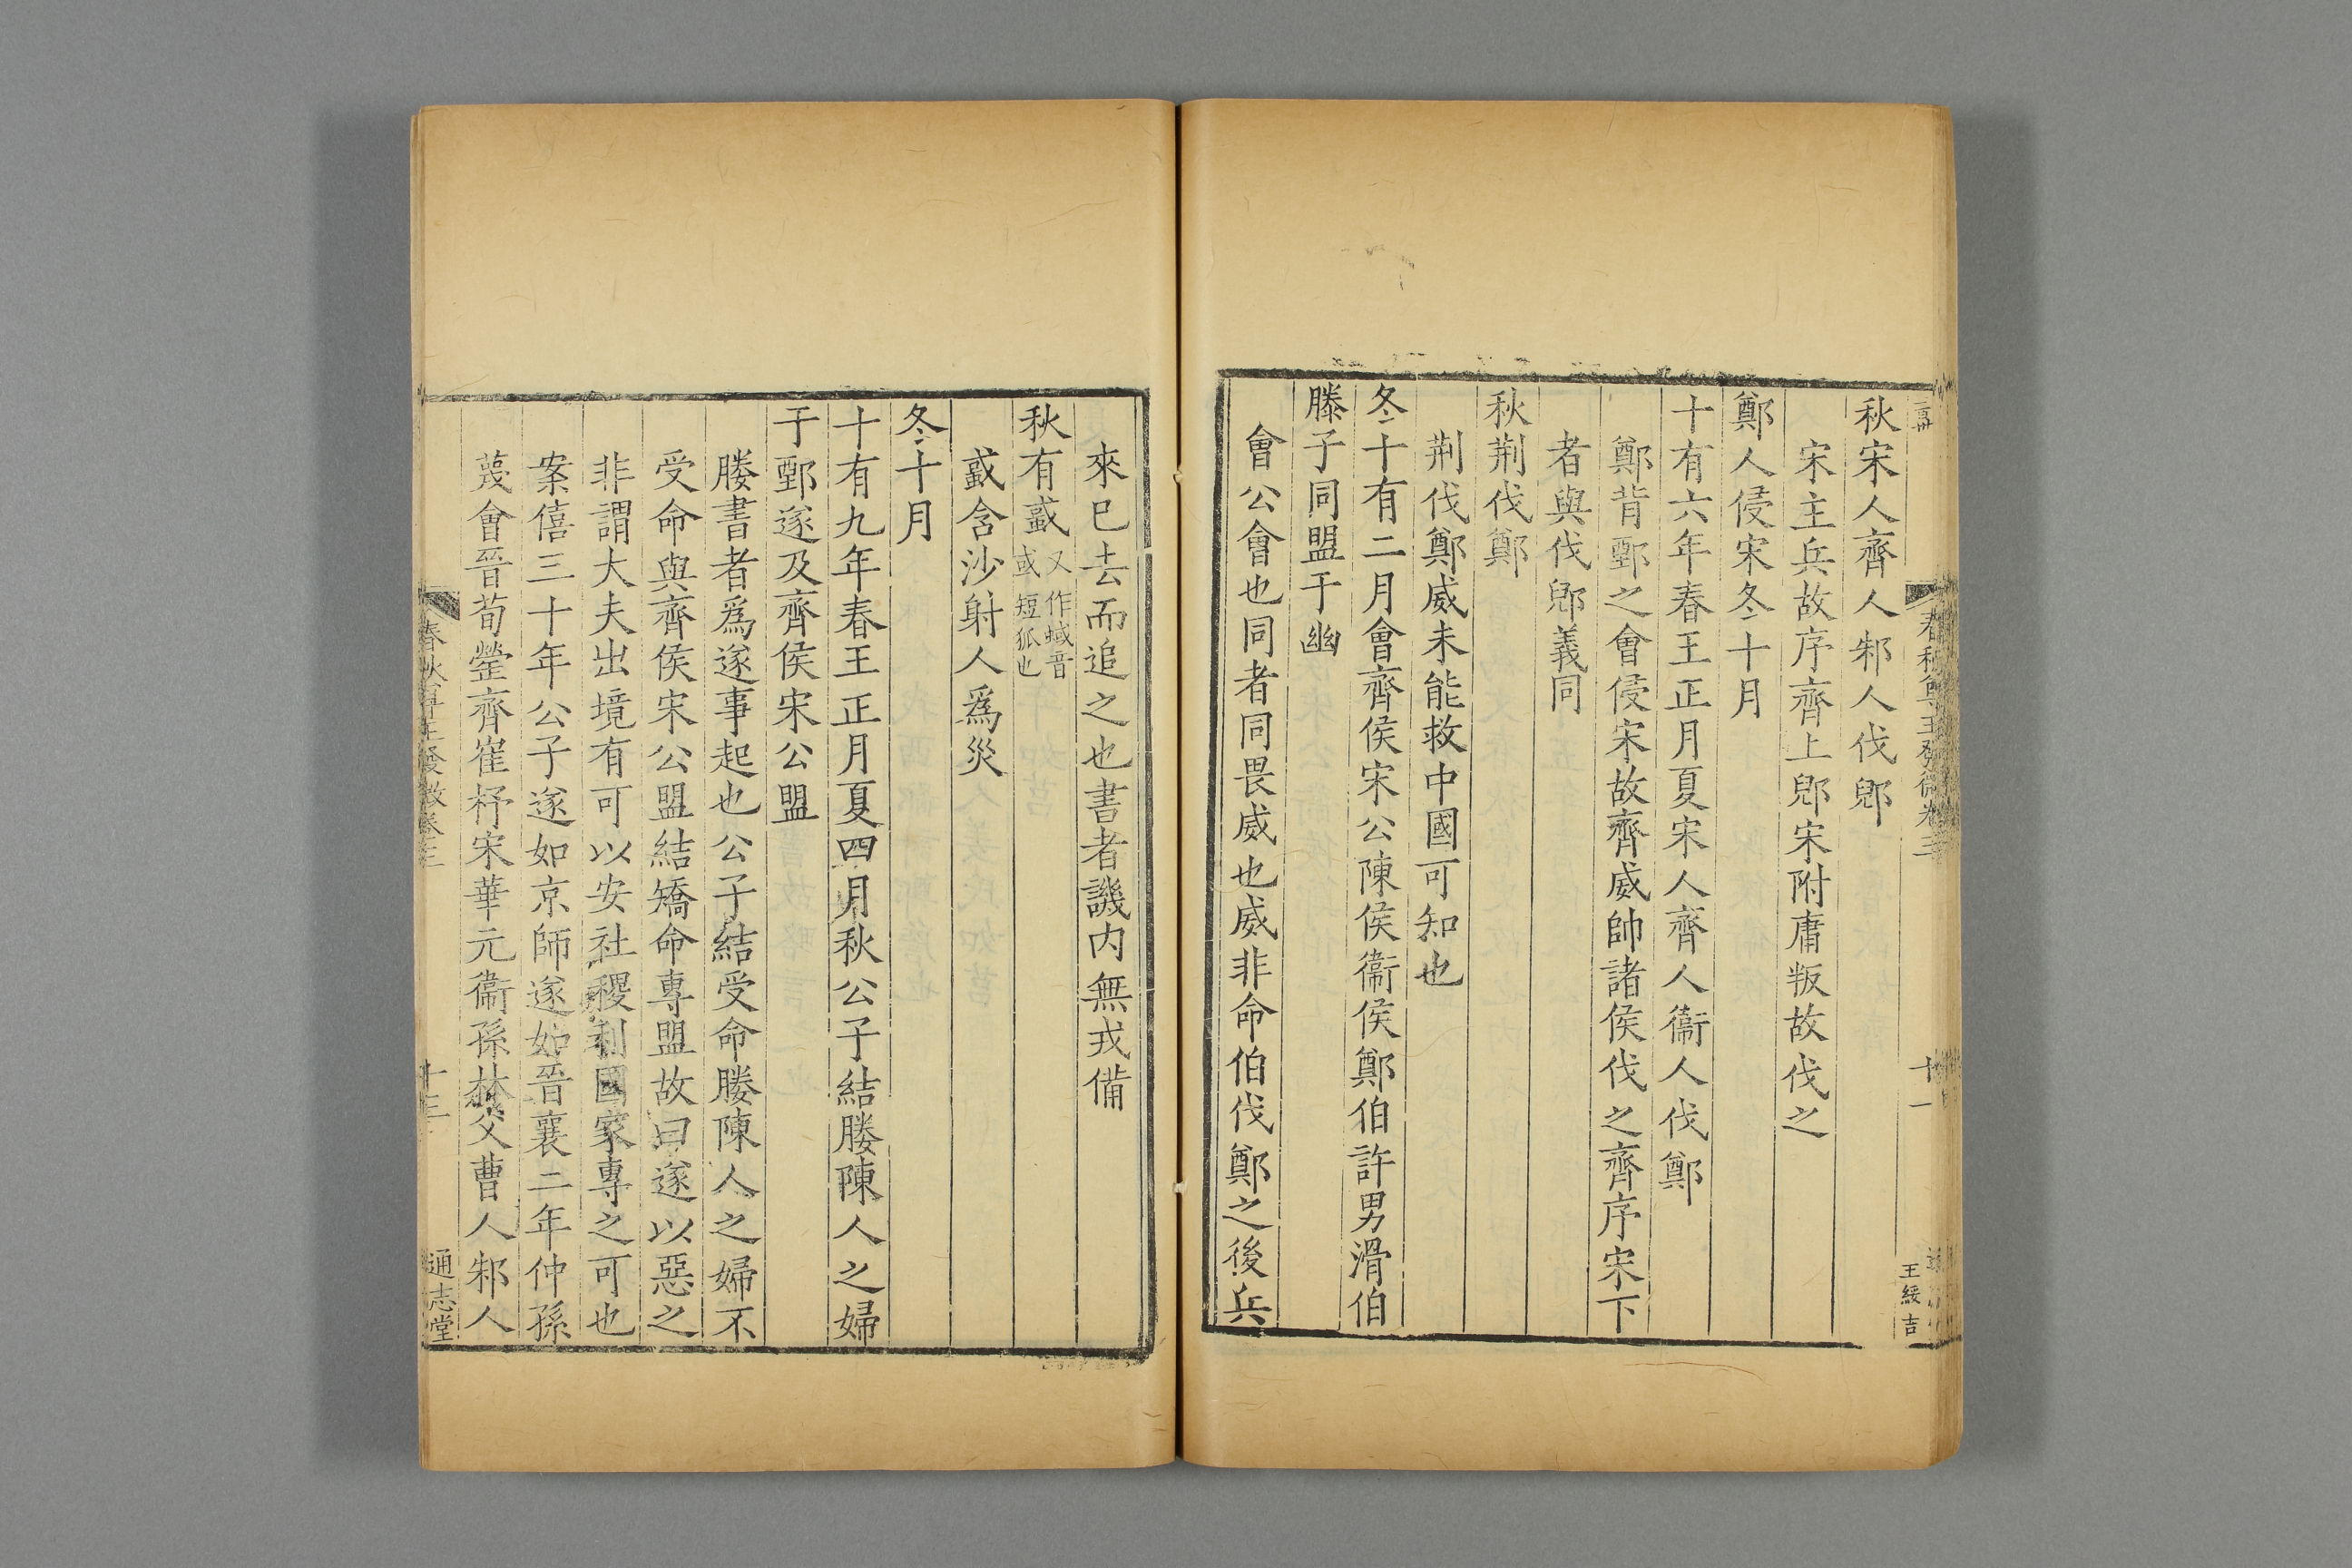 秋宋人齊人邾人伐郳
宋主兵故序齊上郳宋附庸叛故伐之
鄭人侵宋冬十月
十有六年春王正月夏宋人齊人衞人伐鄭
鄭背鄄之會侵宋故齊威帥諸侯伐之齊序宋下
者與伐郳義同
秋荆伐鄭
荆伐鄭威未能救中國可知也
冬十有二月會齊侯宋公陳侯衞侯鄭伯許男滑伯
滕子同盟于幽
會公會也同者同畏威也威非命伯伐鄭之後兵
春秋尊王發微卷三
十一
王綏吉
來已去而追之也書者譏内無戎備
秋有蜮又作蜮音或短狐也
蜮含沙射人爲災
冬十月
十有九年春王正月夏四月秋公子結媵陳人之婦
于鄄遂及齊侯宋公盟
媵書者爲遂事起也公子結受命媵陳人之婦不
受命與齊侯宋公盟結矯命專盟故曰遂以惡之
非謂大夫出境有可以安社稷利國家專之可也
案僖三十年公子遂如京師遂如晉襄二年仲孫
蔑會晉荀罃齊崔杼宋華元衞孫林父曹人邾人
春秋尊王發微卷三
十三
通志堂